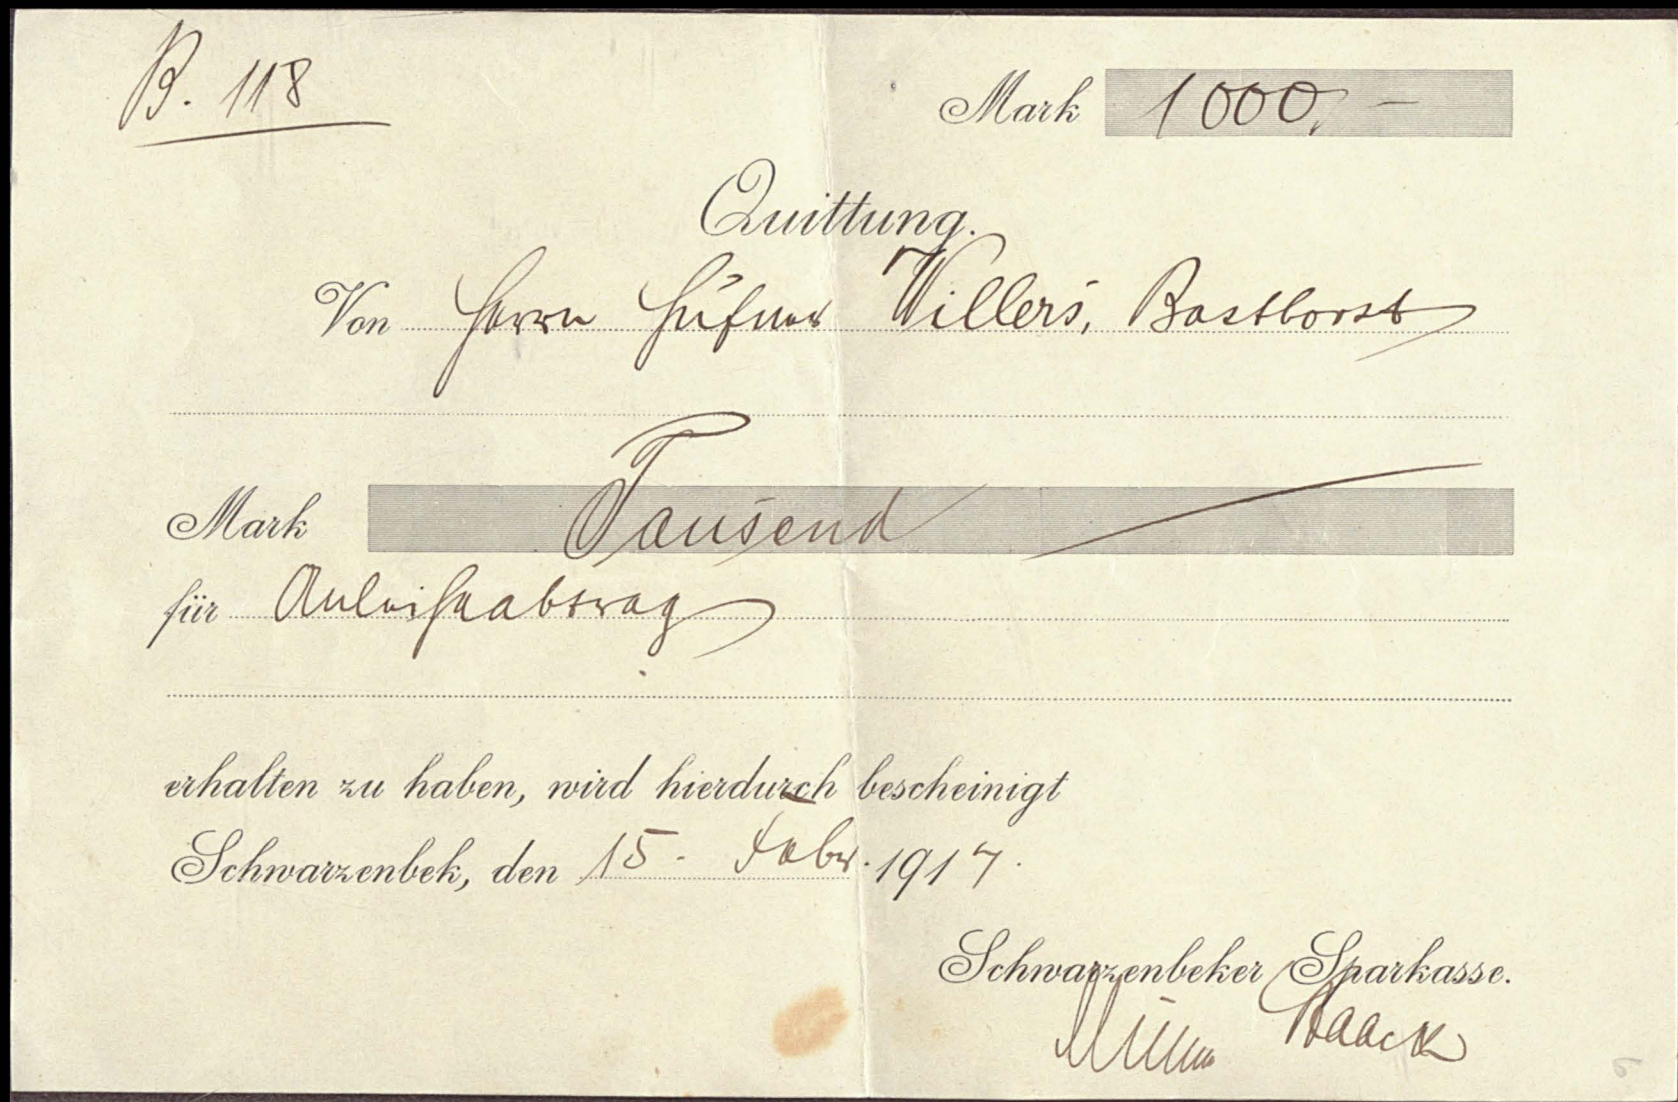 B. 118
Mark 1000,-
Quittung.
Von Herrn Hufner Willers, Basthorst
Mark Tausend
für Anleiheabtrag
erhalten zu haben, wird hierdurch bescheinigt
Schwarzenbek, den 15. Febr. 1917.
Schwarzenbeker Sparkasse.